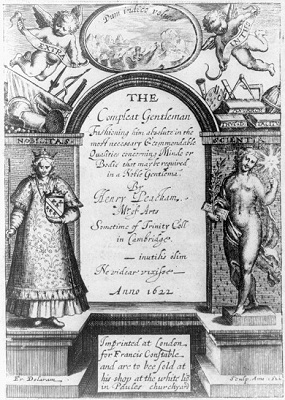 THE
Compleat Gentleman
Fashioning him absolute in the
most necessary & commendable
Qualities concerning Minde or
Bodie that may be required
in a Noble Gentleman.
By
Henry Peacham,
Mr of Arts
Sometime of Trinity Coll:
in Cambridge.
inutilis olim
Ne videar vixisse
Anno 1622
NOBILITAS
SCIENTIA
Imprinted at London
for Francis Constable
and are to bee sold at
his shop at the white liō
in Paules churchyard
Fr. Delaram
Sculp.